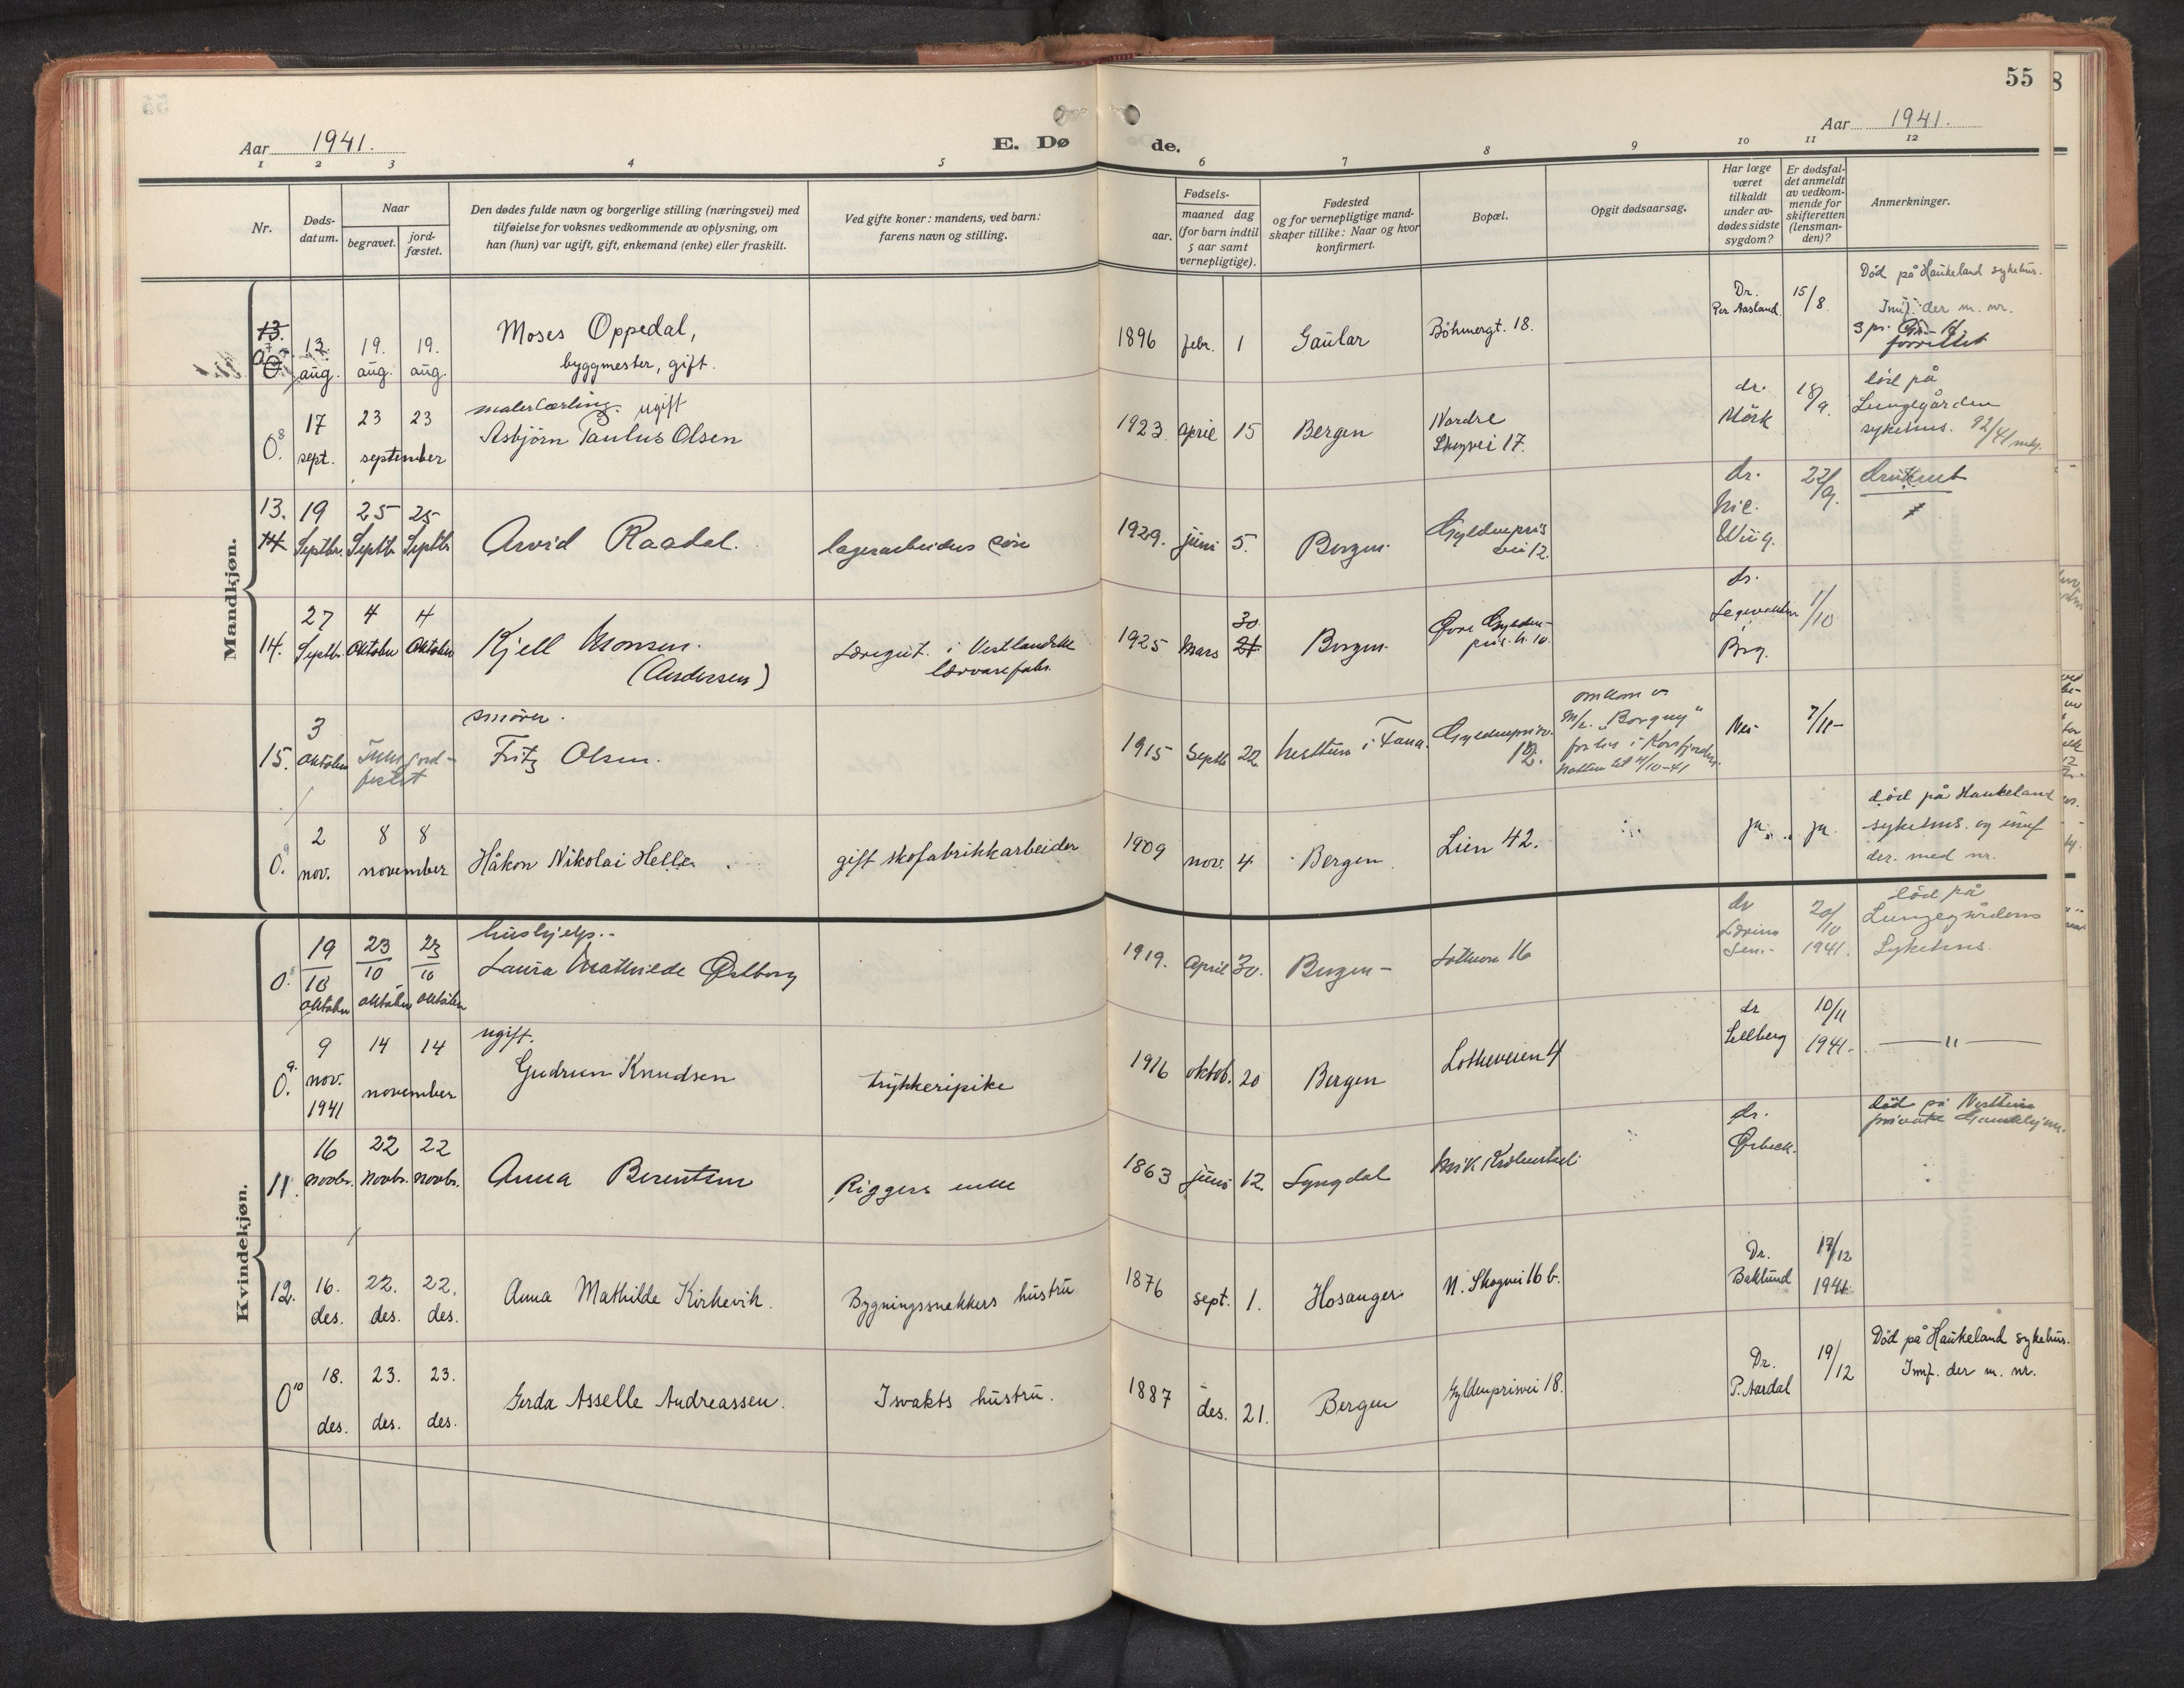 55
Aar 1941.
E. Døde.
Aar 1941.
1 2 3 4 5 6 7 8 9 10 11 12
Nr.
Døds-
datum.
Naar
begravet.
jord-
fæstet.
Den dødes fulde navn og borgerlige stilling (næringsvei) med
tilføielse for voksnes vedkommende av oplysning, om
han (hun) var ugift, gift, enkemand (enke) eller fraskilt.
Ved gifte koner: mandens, ved barn:
farens navn og stilling.
Fødsels-
aar.
maaned dag
(for barn indtil
5 aar samt
vernepligtige).
Fødested
og for vernepligtige mand-
skaper tillike: Naar og hvor
konfirmert.
Bopæl.
Opgit dødsaarsag.
Har læge
været
tilkaldt
under av-
dødes sidste
sygdom?
Er dødsfal-
det anmeldt
av vedkom-
mende for
skifteretten
(lensman-
den)?
Anmerkninger.
Mandkjøn.
13.
7
0.
13.
aug.
19.
aug.
19.
aug.
Moses Oppedal,
byggmester, gift.
1896 febr. 1 Gaular Böhmergt. 18.
Dr.
Per Aasland
15/8
Död på Haukeland sykehus.
Innf. der m. nr.
8
0.
17
sept.
23 23
september
malerlærling. ugift
Asbjörn Paulus Olsen
1923 april 15 Bergen
Nordre
Skogvei 17.
dr.
Mörk
18/9.
död på
Lungegården
sykehus. 92/41
13.
14
19
Septbr.
25
Septb.
25
Septb.
Arvid Raadal.
lagerarbeiders sön
1929. juni 5. Bergen
Gyldenpris
vei 12.
dr.
Nic.
Wiig.
22/9.
druknet
14.
27
Septb.
4
Oktober
4
Oktober
Kjell Monsen.
(Andersen)
Læregut. i Vestlandske
lærvarefabr.
1925 Mars
30
21
Bergen
Øvre Gylden-
pris. 10
dr.
Legevakten
Brg.
1/10
15.
3
oktober
Ikke jord-
festet
smører.
Fritz Olsen.
1915 Septb 22. Nesttun i Fana.
Gyldenprisv.
12.
omkom
M/k. "Borgny"
forlis i Korsfjorden
natten til 4/10-41
Nei
7/11-
9
0.
2
nov.
8 8
november
Håkon Nikolai Helle
gift skofabrikkarbeider
1909 nov. 4 Bergen. Lien 42.
ja. ja.
död på Haukeland
sykehus. og innf
der. med nr.
Kvindekjøn.
0.
19
10
oktober
23
10
oktober
23
10
oktober
hushjelp.
Laura Mathilde Ørlborg
1919. April 30. Bergen - Lotheveien 16
dr
20/10
1941.
död på
Lungegårdens
Sykehus.
9.
0.
9
nov.
1941
14 14
november
ugift.
Gudrun Knudsen
trykkeripike
1916 oktob. 20 Bergen Lotheveien 4
dr
Lellberg
10/11
1941.
— " —
11.
16
novbr.
22
novbr.
22
novbr.
Anna Berentsen
Riggers enke
1863 juni 12. Lyngdal
dr.
Ørbeck.
död på Nesttun
private Gamlehjem.
12.
16.
des.
22.
des.
22.
des.
Anna Mathilde Kirkevik.
Bygningssnekkers hustru
1876 sept. 1. Hosanger N. Skogvei 16 b.
Dr.
Baklund
17/12
1941
0 10
18.
des.
23.
des.
23.
des.
Gerda Asselle Andreassen.
Isvakts hustru.
1887 des. 21. Bergen Gyldenprisvei 18.
Dr.
P. Aardal
19/12
Död på Haukeland sykehus.
Innf. der m. nr.